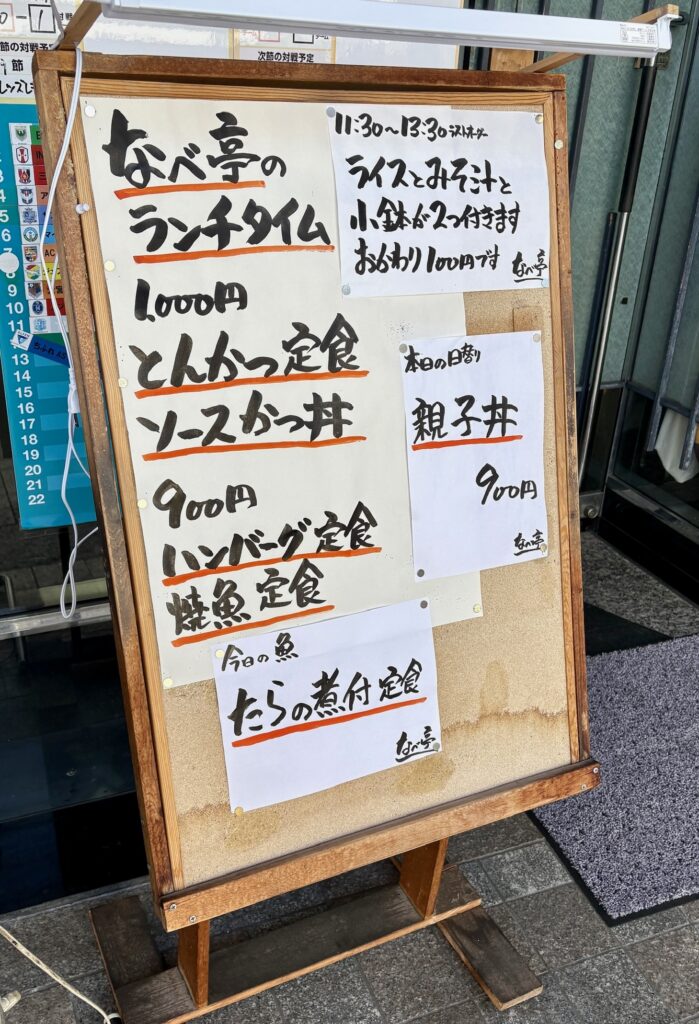 次節の対戦予定
なべ亭の
ランチタイム
1,000円
とんかつ定食
ソースかつ丼
900円
ハンバーグ定食
焼魚定食
11:30~13:30ラストオーダー
ライスとみそ汁と
小鉢が2つ付きます
おかわり100円です
なべ亭
本日の日替り
親子丼
900円
なべ亭
今日の魚
たらの煮付定食
なべ亭
5
6
7
8
9
10
11
13
14
15
16
17
18
19
20
21
22